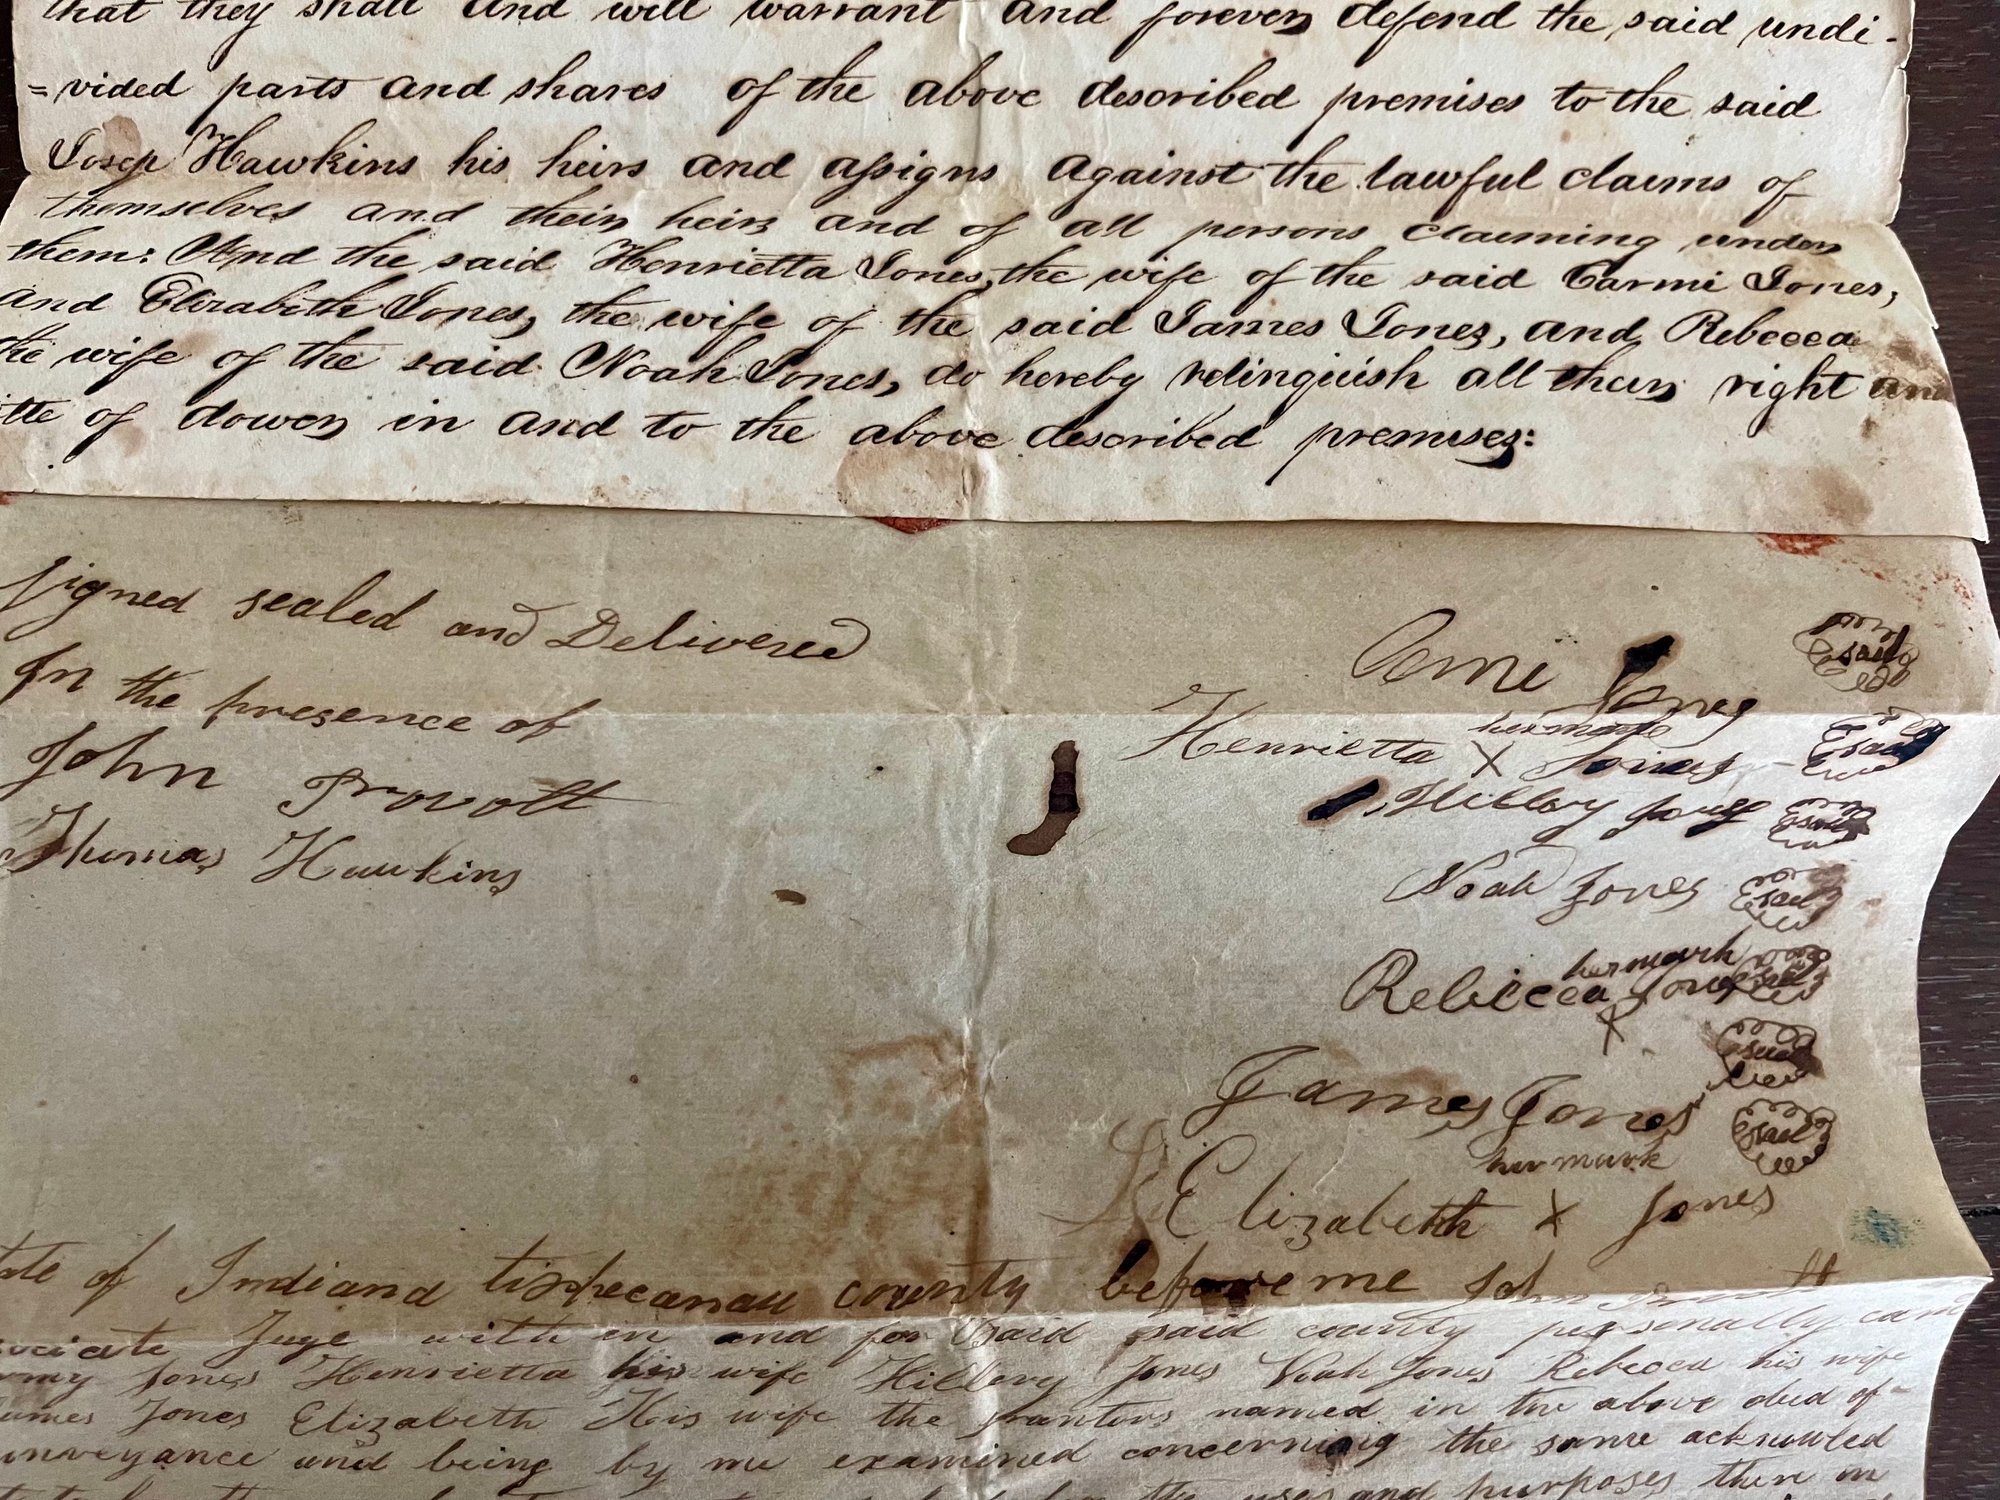 that they shall and will warrant and forever defend the said undi-
=vided parts and shares of the above described premises to the said
Josep Hawkins his heirs and assigns against the lawful claims of
themselves and their heirs and of all persons claiming under
them: And the said Henrietta Jones, the wife of the said Carmi Jones,
and Elizabeth Jones, the wife of the said James Jones, and Rebecca
the wife of the said Noah Jones, do hereby relinquish all their right and
of dower in and to the above described premises:
signed sealed and Delivered
In the presence of
John Provolt
Thomas Hawkins
Carmi Jones seal
her mark
Henrietta X Jones seal
Hillery Jones seal
Noah Jones seal
her mark
Rebecca Jones seal
X
seal
James Jones
seal
her mark
Elizabeth X Jones
of Indiand tippecanau county before me John
Juge with in and for said said county personally
Jones Henrietta his wife Hillery Jones Noah Jones Rebecca his wife
James Jones Elizabeth His wife the grantors named in the above deed of
and being by me examined concerning the same acknowled
the uses and purposes there in